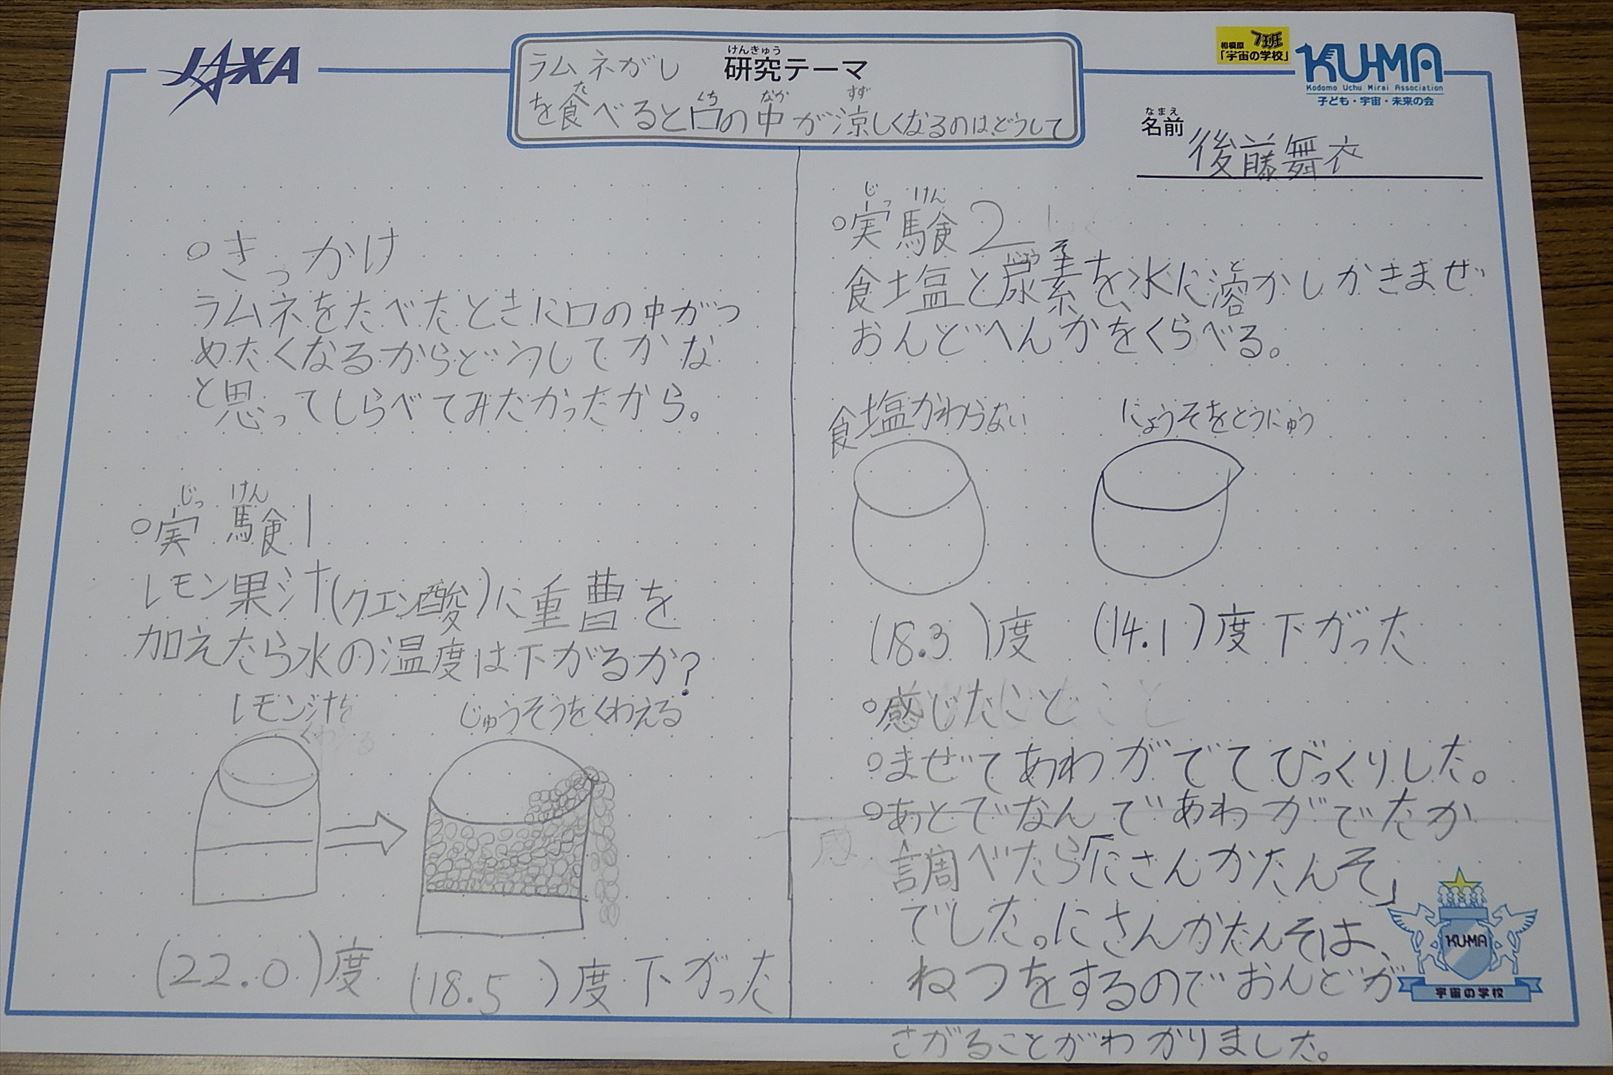 JAXA
けんきゅう
研究テーマ
ラムネがし
た くち なか すず
を食べると口の中が涼しくなるのはどうして
相模原 7班
「宇宙の学校」
KU-MA
Kodomo Uchu Mirai Association
子ども・宇宙・未来の会
なまえ
名前
後藤舞衣
○きっかけ
ラムネをたべたときに口の中がつ
めたくなるからどうしてかな
と思ってしらべてみたかったから。
じっ けん
○実験1
レモン果汁(クエン酸)に重曹を
加えたら水の温度は下がるか?
レモン汁を
じゅうそうをくわえる
(22.0)度
(18.5)度下がった
じっ けん
○実験2
食塩と尿素を水に溶かしかきまぜ
おんどへんかをくらべる。
食塩かわらない
にょうそをとうにゅう
(18.3)度
(14.1)度下がった
○感じたこと
○まぜてあわがでてびっくりした。
○あとでなんであわがでたか
調べたら「にさんかたんそ」
でした。にさんかたんそは、
ねつをするのでおんどが
さがることがわかりました。
KU-MA
宇宙の学校